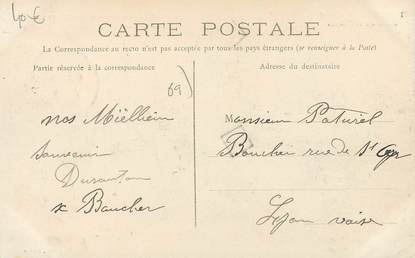 40 €
1
CARTE POSTALE
La Correspondance au recto n'est pas acceptée par tous les pays étrangers (se renseigner à la Poste)
Partie réservée à la correspondance
Adresse du destinataire
69)
nos
souvenir
Duranton
Baucher
Monsieur Paturel
Boucher rue de St Cyr
Lyon vaise